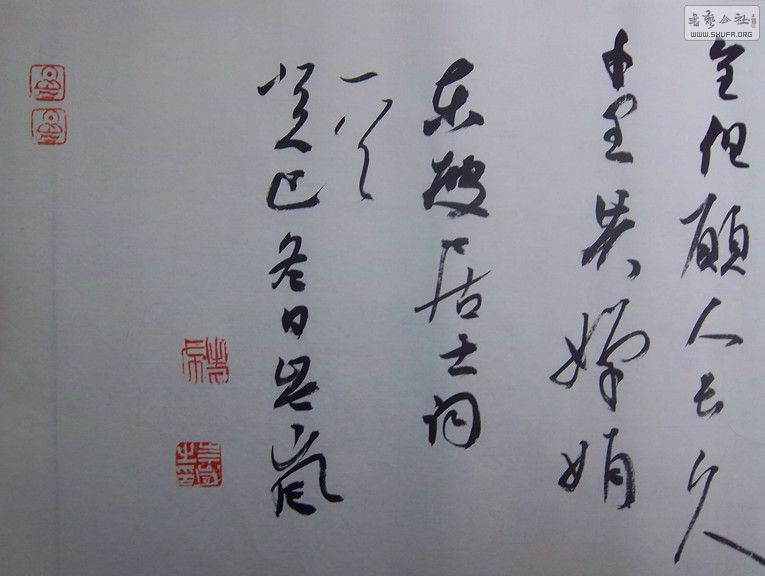 全但願人長久
千里共嬋娟
東坡居士詞
一首
癸巳冬日嵐
書藝公社
WWW.SHUFA.ORG